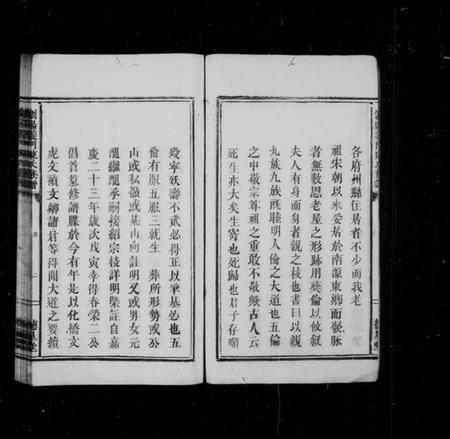 各府州縣任居者不少而我老
祖宋朝以來妥居於南源東鄉而發脈
者無數思老屋之形跡用彛倫以攸叙
夫人有身而身者親之枝也書曰以親
九族九族旣睦明人倫之大道也五倫
之中敬宗尊祖之重敢不敬歟古人云
死生亦大矣生寄也死歸也君子存順
歿寧妖壽不貳必得正以肇基必也五
倫有服五服三就生 葬所形勢或公
山或私嶺或某山向註明又或男女元
龍繼龍承嗣接紹宗枝詳明槩註自嘉
慶二十三年歲次戊寅幸得春榮二公
倡首墓修譜牒於今有年是以化橋文
虎文禎文綱諸君等得聞大道之要積
序